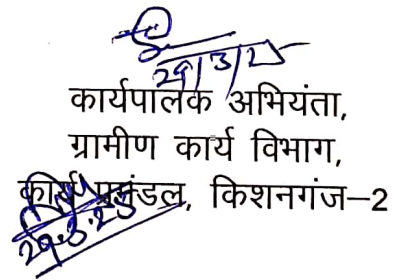 29/3/25
कार्यपालक अभियंता,
ग्रामीण कार्य विभाग,
कार्य प्रमंडल, किशनगंज–2
29.3.25